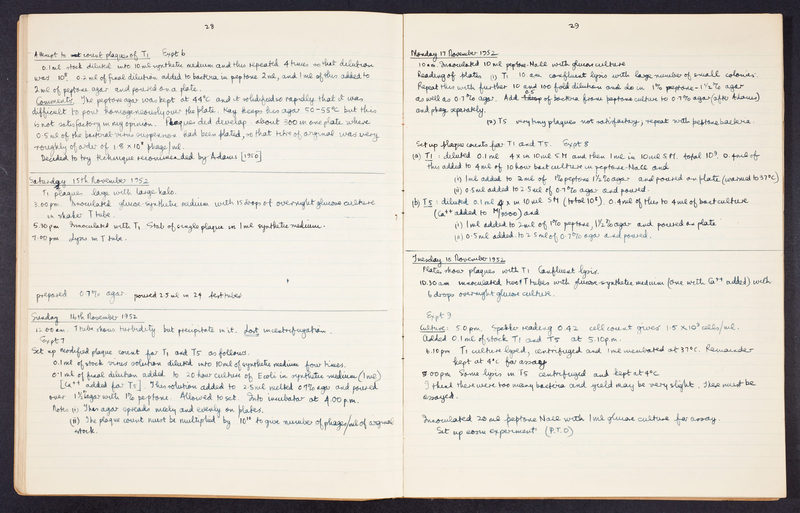 28
Attempt to count plaques of T1 Expt 6
0.1ml stock diluted into 10ml synthetic medium and this repeated 4 times so that dilution
was 10⁸. 0.2ml of final dilution added to bacteria in peptone 2ml, and 1ml of this added to
2ml of peptone agar and poured on a plate.
Comments The peptone agar was kept at 44°C and it solidified so rapidly that it was
difficult to pour homogeneously over the plate. Kay keeps his agar 50-55°C but this
is not satisfactory in my opinion. Plaques did develop about 300 in one plate where
0.5ml of the bacterial virus suspension had been plated, so that titre of original was very
roughly of order of 1.8 x 10¹¹ phage/ml.
Decided to try technique recommended by Adams [1950]
Saturday 15th November 1952
T1 plaques large with large halo.
3.00pm Inoculated glucose synthetic medium with 15 drops of overnight glucose culture
in shaker T tube.
5.30pm Inoculated with T1 Stab of single plaque in 1ml synthetic medium.
7.00pm Lysis in T tube.
prepared 0.7% agar poured 2.5ml in 24 test tubes
Sunday 16th November 1952
12.00am. T tube shows turbidity but precipitate in it. Lost in centrifugation.
Expt 7
Set up modified plaque count for T1 and T5 as follows.
0.1ml of stock virus solution diluted into 10ml of synthetic medium four times.
0.1ml of final dilution added to 20 hour culture of E coli in synthetic medium (1ml)
[Ca⁺⁺ added for T5] This solution added to 2.5ml melted 0.7% agar and poured
over 1½% agar with 1% peptone. Allowed to set. Into incubator at 4.00pm.
Notes (i) This agar spreads nicely and evenly on plates.
(ii) The plaque count must be multiplied by 10¹⁰ to give number of phages/ml of original
stock.
29
Monday 17 November 1952
10am. Inoculated 10ml peptone-NaCl with glucose culture
Reading of plates (i) T1 10am confluent lysis with large number of small colonies.
Repeat this with further 10 and 100 fold dilution and do in 1% peptone-1½% agar
as well as 0.7% agar. Add 0.5 of bacteria from peptone culture to 0.7% agar (after Adams)
and phage separately.
(2) T5 very tiny plaques not satisfactory; repeat with peptone bacteria.
Set up plaque counts for T1 and T5. Expt 8
(a) T1: diluted 0.1ml 4x in 10ml SM and then 1ml in 10ml SM. total 10⁹. 0.4ml of
this added to 4ml of 10 hour bact culture in peptone-NaCl and
(i) 1ml added to 2ml of 1% peptone 1½% agar and poured on plate (warmed to 37°C)
(ii) 0.5ml added to 2.5ml of 0.7% agar and poured.
(b) T5: diluted 0.1ml 4x in 10ml SM (total 10⁸). 0.4ml of this to 4ml of bact culture
(Ca⁺⁺ added to M/1000) and
(i) 1ml added to 2ml of 1% peptone, 1½% agar and poured on plate
(ii) 0.5ml added to 2.5ml of 0.7% agar and poured.
Tuesday 18 November 1952
Plates show plaques with T1 Confluent lysis.
10.30am inoculated two T tubes with glucose-synthetic medium (one with Ca⁺⁺ added) with
6 drops overnight glucose culture.
Expt 9
Culture: 5.0pm. Spekker reading 0.42 cell count gives 1.5 x 10⁹ cells/ml.
Added 0.1ml of stock T1 and T5 at 5.10pm.
6.10pm T1 culture lysed, centrifuged and 1ml incubated at 37°C. Remainder
kept at 4°C for assay
8.00pm Some lysis in T5 centrifuged and kept at 4°C
I think there were too many bacteria and yield may be very slight. These must be
assayed.
Inoculated 20ml peptone NaCl with 1ml glucose culture for assay.
Set up experiment (P.T.O)